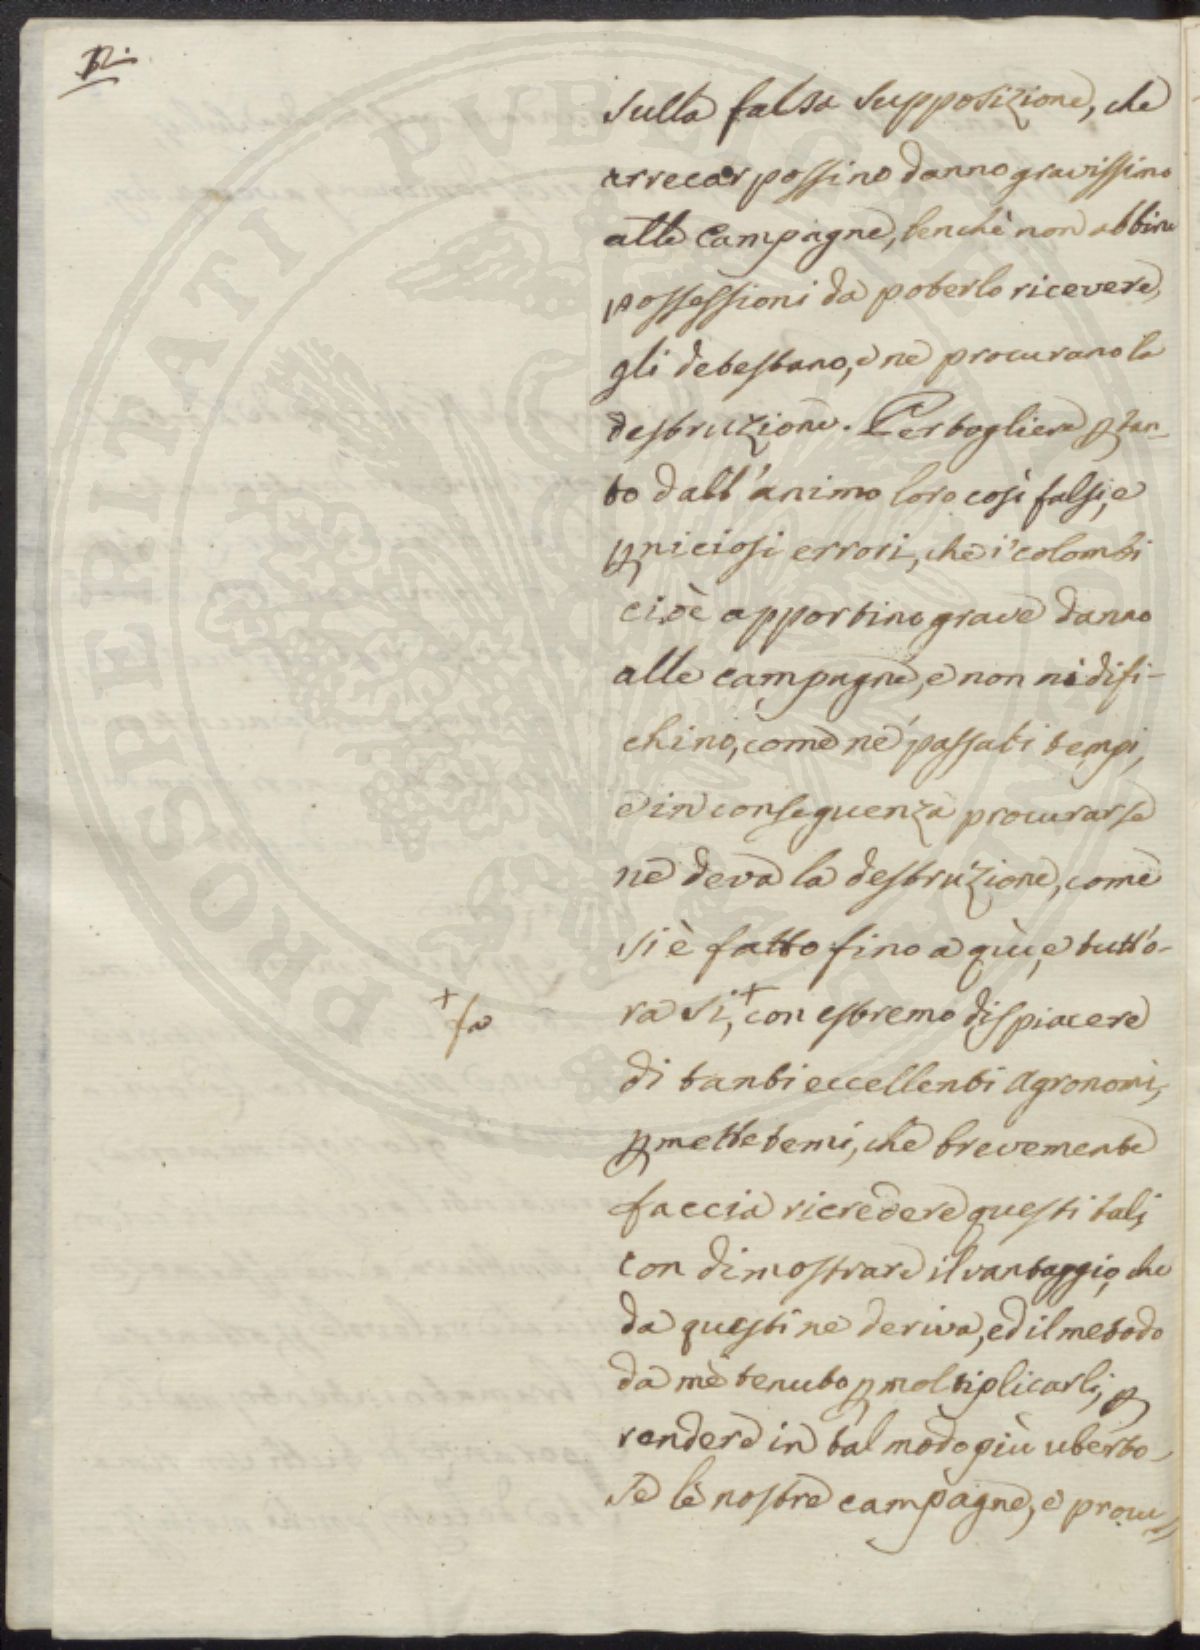 12.
sulla falsa supposizione, che
arrecar possino danno gravissimo
alle Campagne, benchè non abbino
possessioni da poterlo ricevere,
gli detestano, e ne procurano la
destruzione. Per togliere ꝑtan-
to dall'animo loro così falsi, e
ꝑniciosi errori, che i colombi
cioè apportino grave danno
alle campagne, e non nidifi-
chino, come ne' passati tempi,
e in conseguenza procurarse
ne deva la destruzione, come
si è fatto fino a qui, e tutt'o-
ra si,+ con estremo dispiacere
+ fa
di tanti eccellenti Agronomi,
ꝑmettetemi, che brevemente
faccia ricredere questi tali,
con dimostrare il vantaggio, che
da questi ne deriva, ed il metodo
da mè tenuto ꝑ moltiplicarli, ꝑ
rendere in tal modo più uberto-
se le nostre campagne, e procu-
PROSPERITATI PUBLICAE